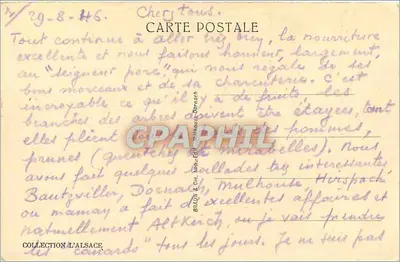 29-8-46. Chers tous.
CARTE POSTALE
Tout continue à aller très bien, la nourriture
excellente et nous faisons honneur, largement
au "seigneur porc" qui nous régale de ses
bons morceaux et de sa charcuterie. C'est
incroyable ce qu'il y a de fruits les
branches des arbres doivent être étayées, tant
elles plient de pommes,
prunes (quetches et mirabelles). Nous
avons fait quelques ballades très intéressantes
Bantzviller, Dornach, Mulhouse, Hirspach
ou maman a fait d'excellentes affaires et
naturellement Altkirch, ou je vais prendre
les canards" tous les jours. Je ne suis pas
CARTAPHIL
COLLECTION L'ALSACE